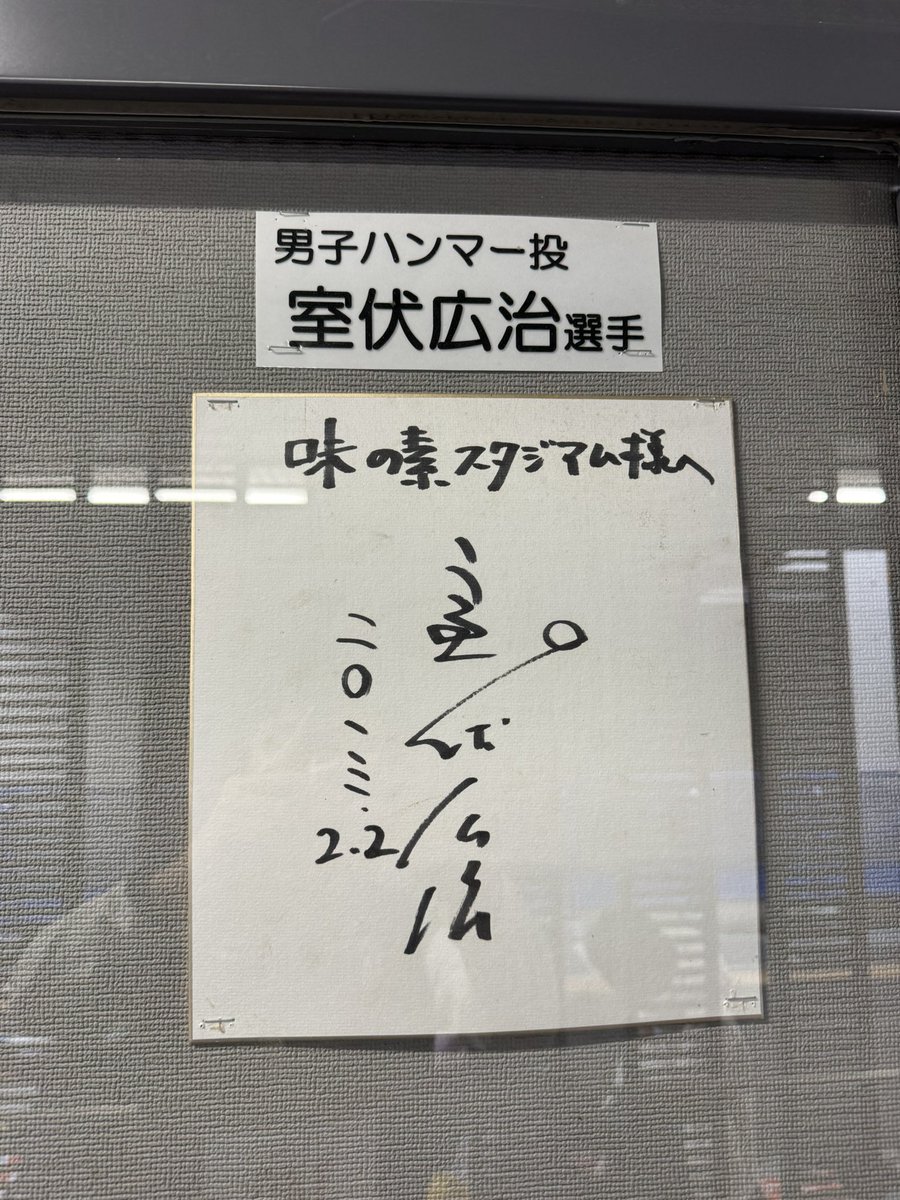 男子ハンマー投
室伏広治選手
味の素スタジアム様へ
室伏広治
二〇一三.
2.2